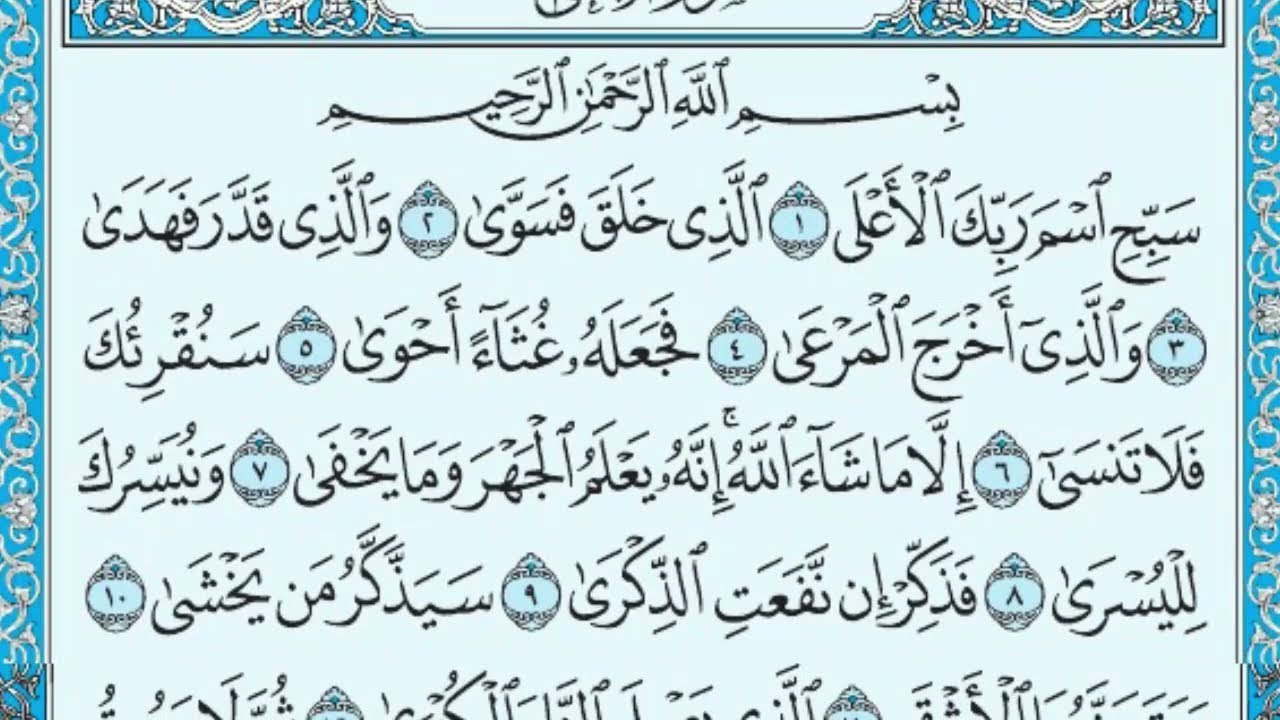 بِسْمِ ٱللَّهِ ٱلرَّحْمَٰنِ ٱلرَّحِيمِ
سَبِّحِ ٱسْمَ رَبِّكَ ٱلْأَعْلَى ١ ٱلَّذِى خَلَقَ فَسَوَّىٰ ٢ وَٱلَّذِى قَدَّرَ فَهَدَىٰ
٣ وَٱلَّذِىٓ أَخْرَجَ ٱلْمَرْعَىٰ ٤ فَجَعَلَهُۥ غُثَآءً أَحْوَىٰ ٥ سَنُقْرِئُكَ
فَلَا تَنسَىٰٓ ٦ إِلَّا مَا شَآءَ ٱللَّهُ ۚ إِنَّهُۥ يَعْلَمُ ٱلْجَهْرَ وَمَا يَخْفَىٰ ٧ وَنُيَسِّرُكَ
لِلْيُسْرَىٰ ٨ فَذَكِّرْ إِن نَّفَعَتِ ٱلذِّكْرَىٰ ٩ سَيَذَّكَّرُ مَن يَخْشَىٰ ١٠